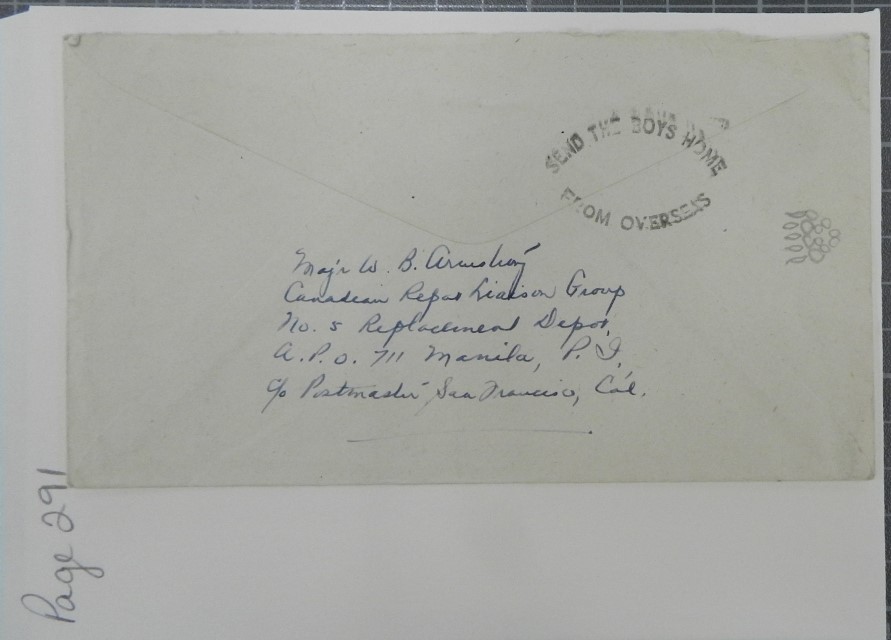 SEND THE BOYS HOME
FROM OVERSEAS
Maj'r W. B. Armstrong
Canadian Repat Liaison Group
No. 5 Replacement Depot,
A.P.O. 711 Manila, P. I.
c/o Postmaster San Francisco, Cal.
Page 291